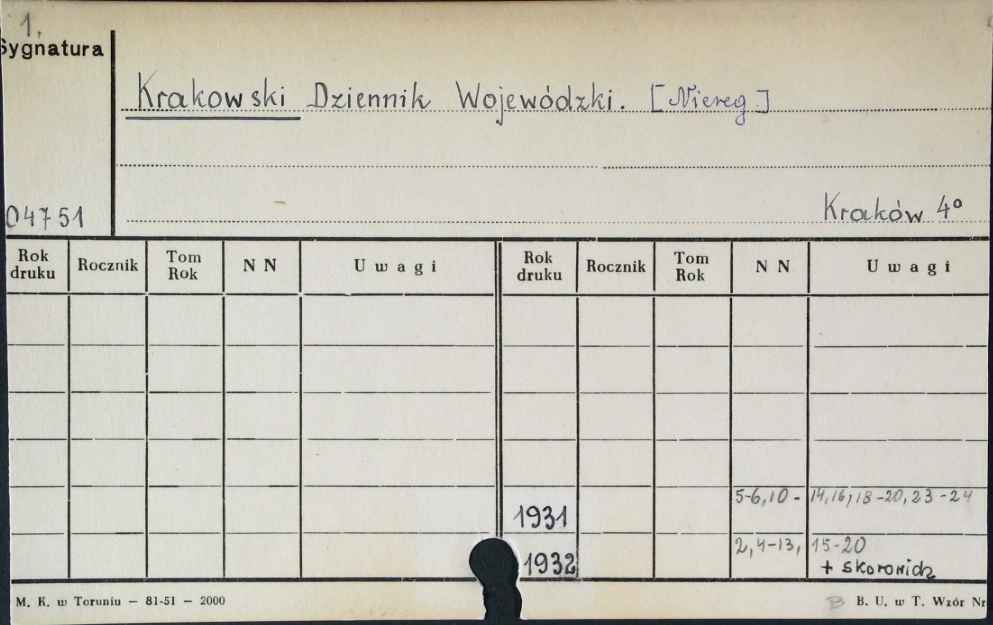 1.
Sygnatura
Krakowski Dziennik Wojewódzki. [Niereg.]
04751
Kraków 4°
Rok druku Rocznik Tom Rok N N Uwagi Rok druku Rocznik Tom Rok N N Uwagi
1931 5-6, 10 - 14, 16, 18 -20, 23 -24
1932 2, 4-13, 15-20
+ skorowidz
M. K. w Toruniu — 81-51 — 2000
B B. U. w T. Wzór Nr